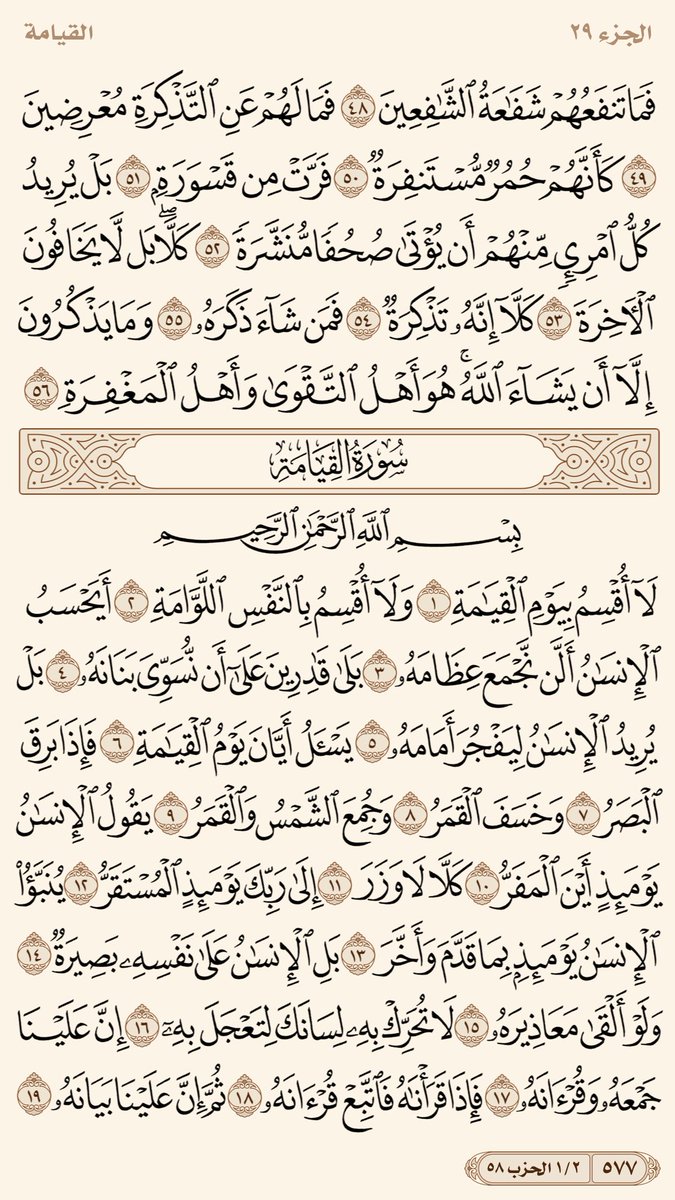 الجزء ٢٩ القيامة
فَمَا تَنفَعُهُمْ شَفَٰعَةُ ٱلشَّٰفِعِينَ ٤٨ فَمَا لَهُمْ عَنِ ٱلتَّذْكِرَةِ مُعْرِضِينَ
٤٩ كَأَنَّهُمْ حُمُرٌ مُّسْتَنفِرَةٌ ٥٠ فَرَّتْ مِن قَسْوَرَةٍۭ ٥١ بَلْ يُرِيدُ
كُلُّ ٱمْرِئٍ مِّنْهُمْ أَن يُؤْتَىٰ صُحُفًا مُّنَشَّرَةً ٥٢ كَلَّاۖ بَل لَّا يَخَافُونَ
ٱلْأَخِرَةَ ٥٣ كَلَّآ إِنَّهُۥ تَذْكِرَةٌ ٥٤ فَمَن شَآءَ ذَكَرَهُۥ ٥٥ وَمَا يَذْكُرُونَ
إِلَّآ أَن يَشَآءَ ٱللَّهُۚ هُوَ أَهْلُ ٱلتَّقْوَىٰ وَأَهْلُ ٱلْمَغْفِرَةِ ٥٦
سُورَةُ القِيَامَةِ
بِسْمِ ٱللَّهِ ٱلرَّحْمَٰنِ ٱلرَّحِيمِ
لَآ أُقْسِمُ بِيَوْمِ ٱلْقِيَٰمَةِ ١ وَلَآ أُقْسِمُ بِٱلنَّفْسِ ٱللَّوَّامَةِ ٢ أَيَحْسَبُ
ٱلْإِنسَٰنُ أَلَّن نَّجْمَعَ عِظَامَهُۥ ٣ بَلَىٰ قَٰدِرِينَ عَلَىٰٓ أَن نُّسَوِّىَ بَنَانَهُۥ ٤ بَلْ
يُرِيدُ ٱلْإِنسَٰنُ لِيَفْجُرَ أَمَامَهُۥ ٥ يَسْـَٔلُ أَيَّانَ يَوْمُ ٱلْقِيَٰمَةِ ٦ فَإِذَا بَرِقَ
ٱلْبَصَرُ ٧ وَخَسَفَ ٱلْقَمَرُ ٨ وَجُمِعَ ٱلشَّمْسُ وَٱلْقَمَرُ ٩ يَقُولُ ٱلْإِنسَٰنُ
يَوْمَئِذٍ أَيْنَ ٱلْمَفَرُّ ١٠ كَلَّا لَا وَزَرَ ١١ إِلَىٰ رَبِّكَ يَوْمَئِذٍ ٱلْمُسْتَقَرُّ ١٢ يُنَبَّؤُا۟
ٱلْإِنسَٰنُ يَوْمَئِذٍۭ بِمَا قَدَّمَ وَأَخَّرَ ١٣ بَلِ ٱلْإِنسَٰنُ عَلَىٰ نَفْسِهِۦ بَصِيرَةٌ ١٤
وَلَوْ أَلْقَىٰ مَعَاذِيرَهُۥ ١٥ لَا تُحَرِّكْ بِهِۦ لِسَانَكَ لِتَعْجَلَ بِهِۦٓ ١٦ إِنَّ عَلَيْنَا
جَمْعَهُۥ وَقُرْءَانَهُۥ ١٧ فَإِذَا قَرَأْنَٰهُ فَٱتَّبِعْ قُرْءَانَهُۥ ١٨ ثُمَّ إِنَّ عَلَيْنَا بَيَانَهُۥ ١٩
٥٧٧ ١/٢ الحزب ٥٨